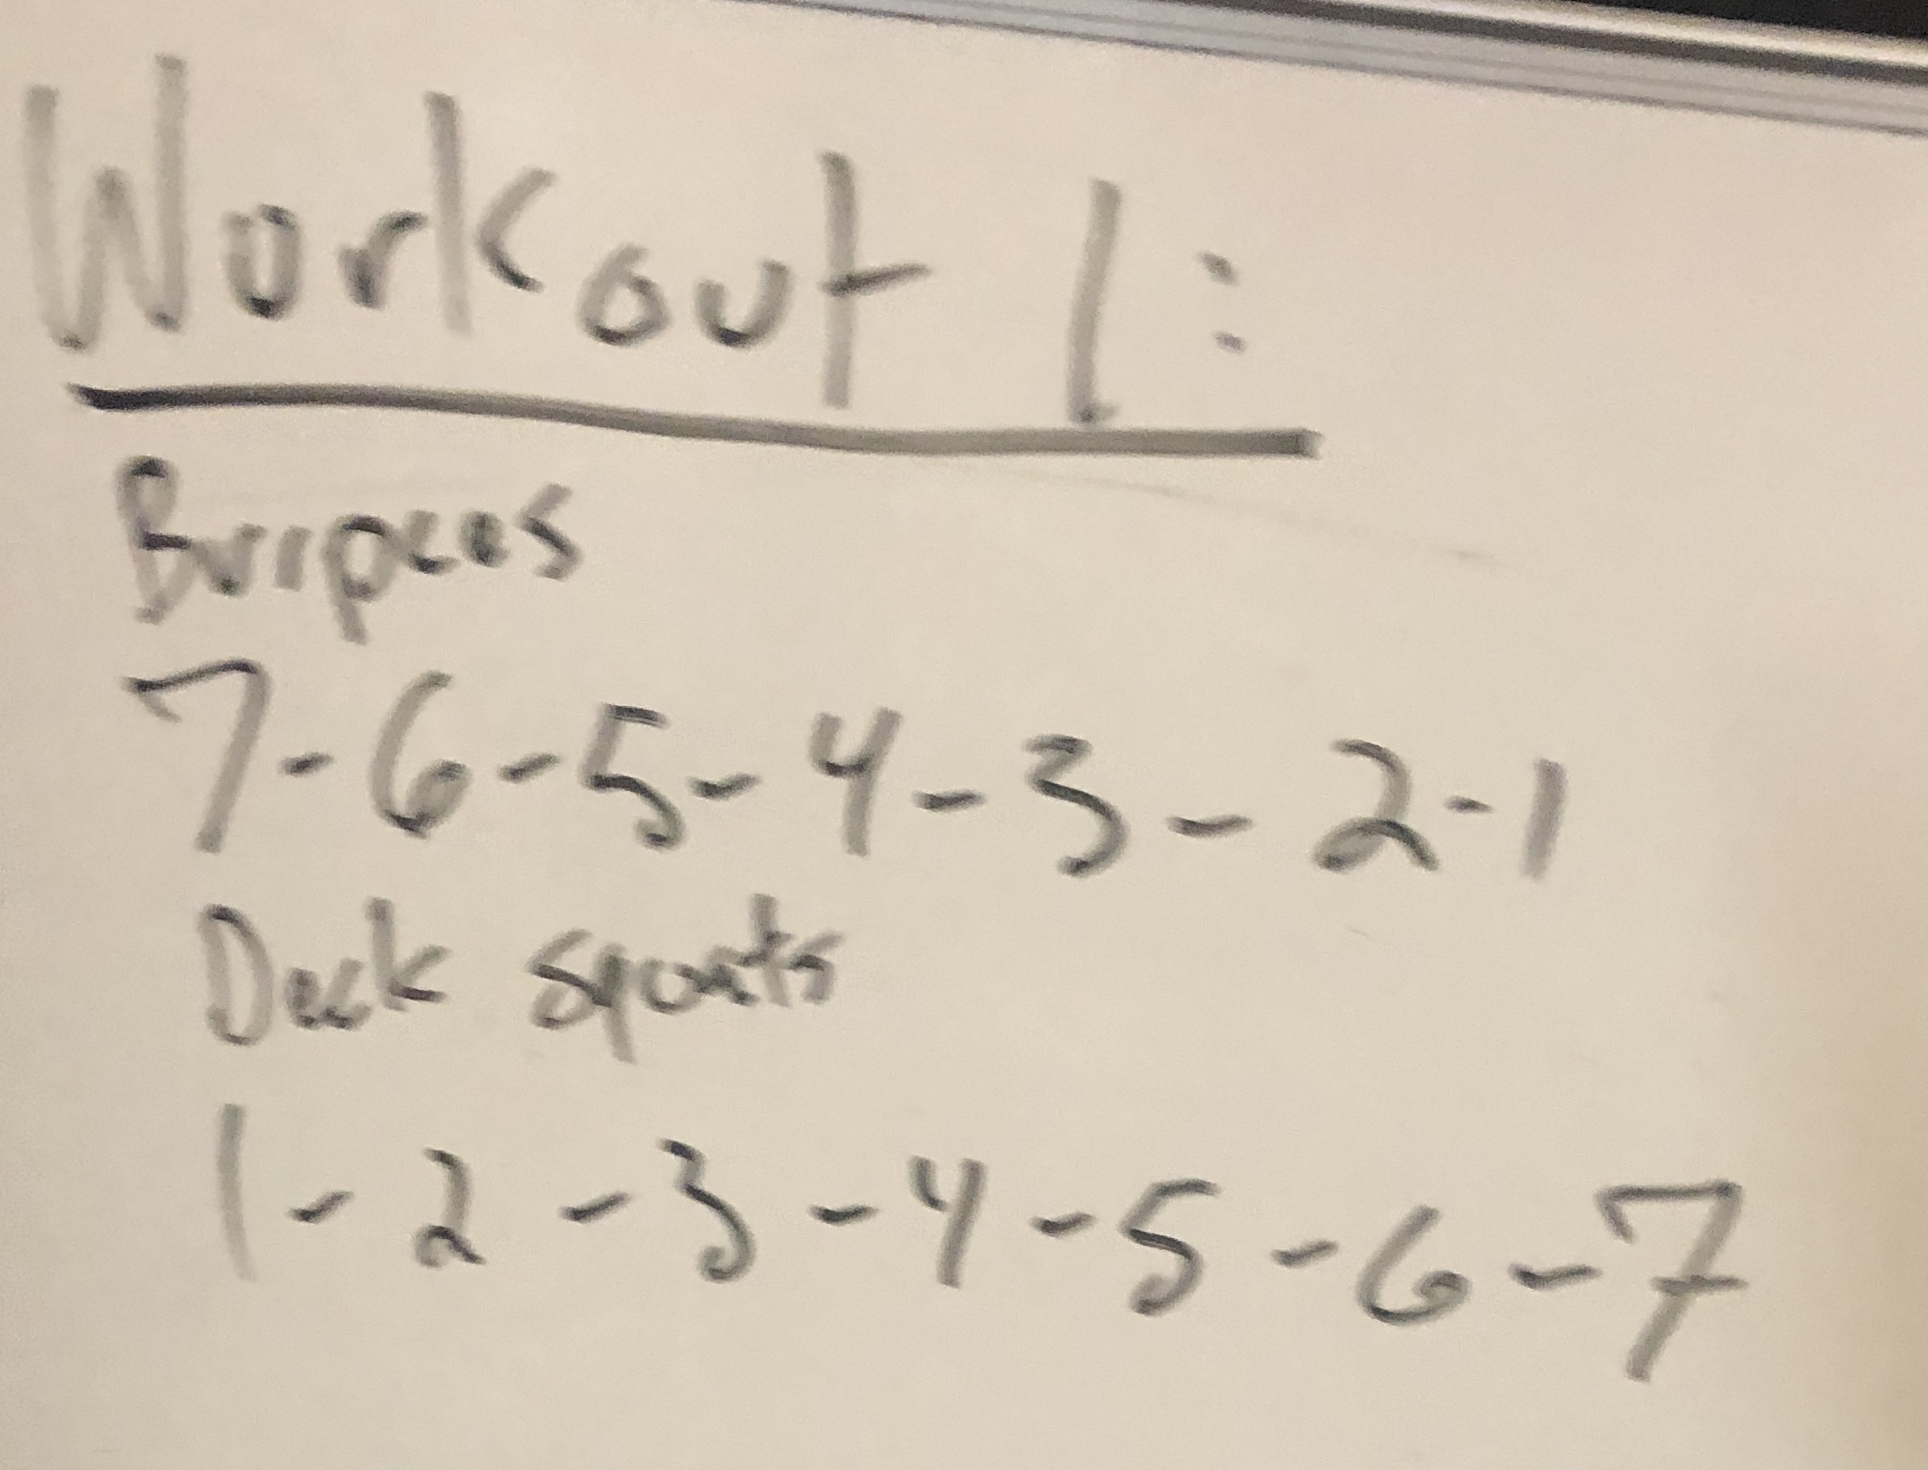 Workout 1:
Burpees
7-6-5-4-3-2-1
Deck squats
1-2-3-4-5-6-7